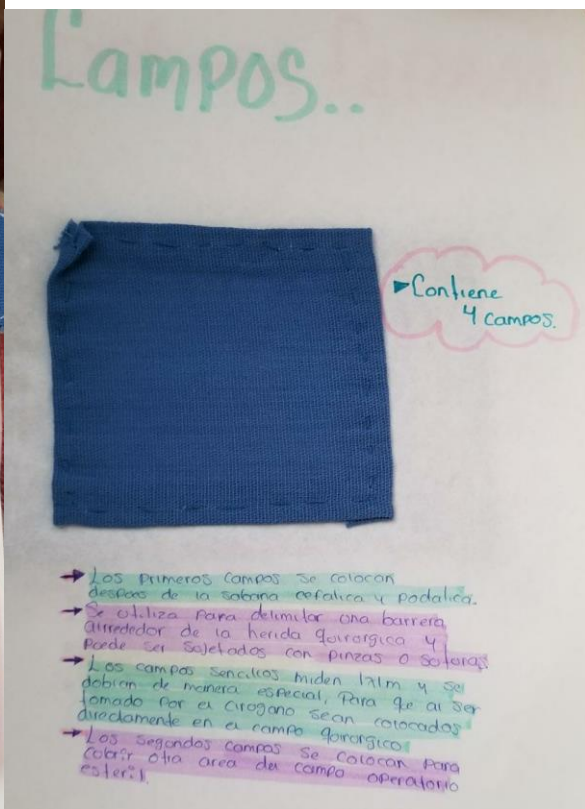 Campos..
▶Contiene
4 campos.
→ Los primeros campos se colocan
despues de la sabana cefalica y podalica.
→ Se utiliza para delimitar una barrera
alrrededor de la herida quirorgica y
puede ser sujetados con pinzas o suturas
→ Los campos sencillos miden 1x1m y se
doblan de manera especial, para que al ser
tomado por el cirogano sean colocados
directamente en el campo quirorgico.
→ Los segundos campos se colocan para
cobrir otra area del campo operatorio
esteril.